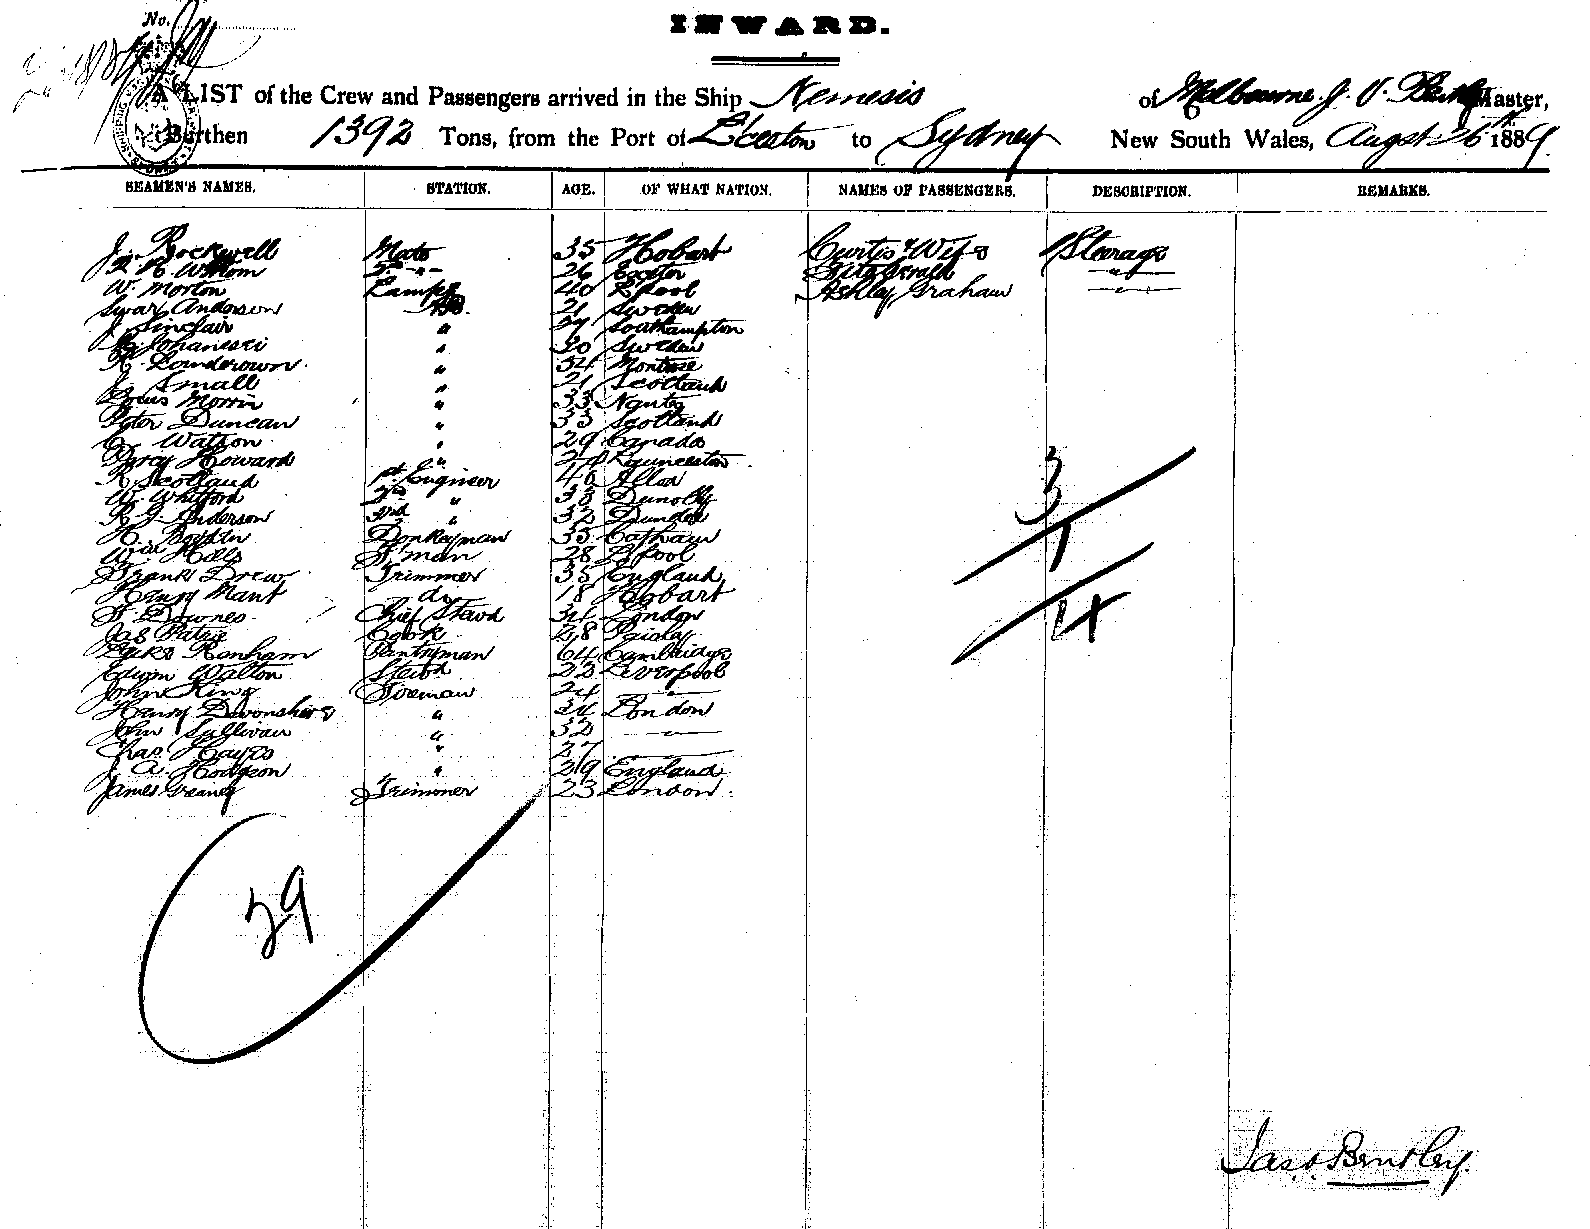 No.
INWARD.
A LIST of the Crew and Passengers arrived in the Ship Nemesis of Melbourne J. V. Master,
Burthen 1392 Tons, from the Port of L'ceston to Sydney New South Wales, Augst 26th 1889.
SEAMEN'S NAMES. STATION. AGE. OF WHAT NATION. NAMES OF PASSENGERS. DESCRIPTION. REMARKS.
J. Rockwell Mate 35 Hobart Curtis & Wife Steerage
26 Exeter Fitzgerald "
W. Morton Lamps 40 L'pool Ashley Graham "
Swar Anderson AB. 21 Sweden
J. Sinclair " 27 Southampton
Johansen " 30 Sweden
R. " 34 Montrose
J. Small " 21 Scotland
Louis Morrin " 33 Nantes
Peter Duncan " 33 Scotland
C. Watson " 29 Canada
Percy Howard " 24 Launceston
R. Scotland 1st Engineer 46 Alloa
W. Whitford 2nd " 33 Dunolly
R. J. Anderson 3rd " 32 Dundee
Donkeyman 35
Wm Hills F'man 28 L'pool
Frank Drew Trimmer 35 England
Henry Mant do 18 Hobart
F. Downes Chief Stewd 34 London
Jas Patrie Cook 28 Paisley
Ranham Pantryman 64 Cambridge
Edwin Walton Stewd 22 Liverpool
John King Foreman 24 "
Henry Devonshire " 34 London
John Sullivan " 32 "
Chas. Hayes " 27
J. A. Hodgson " 29 England
James Greaney Trimmer 23 London
3
1
4
29
Jas. Bentley